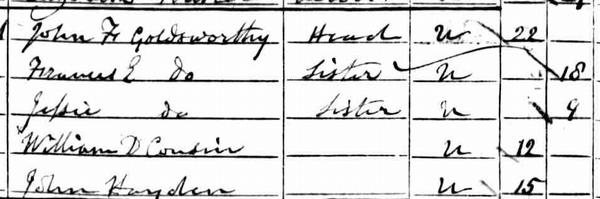 John Fr Goldsworthy Head U 22
Frances E do Sister U 18
Jessie do Sister U 9
William D Cousin U 12
John Hayden U 15